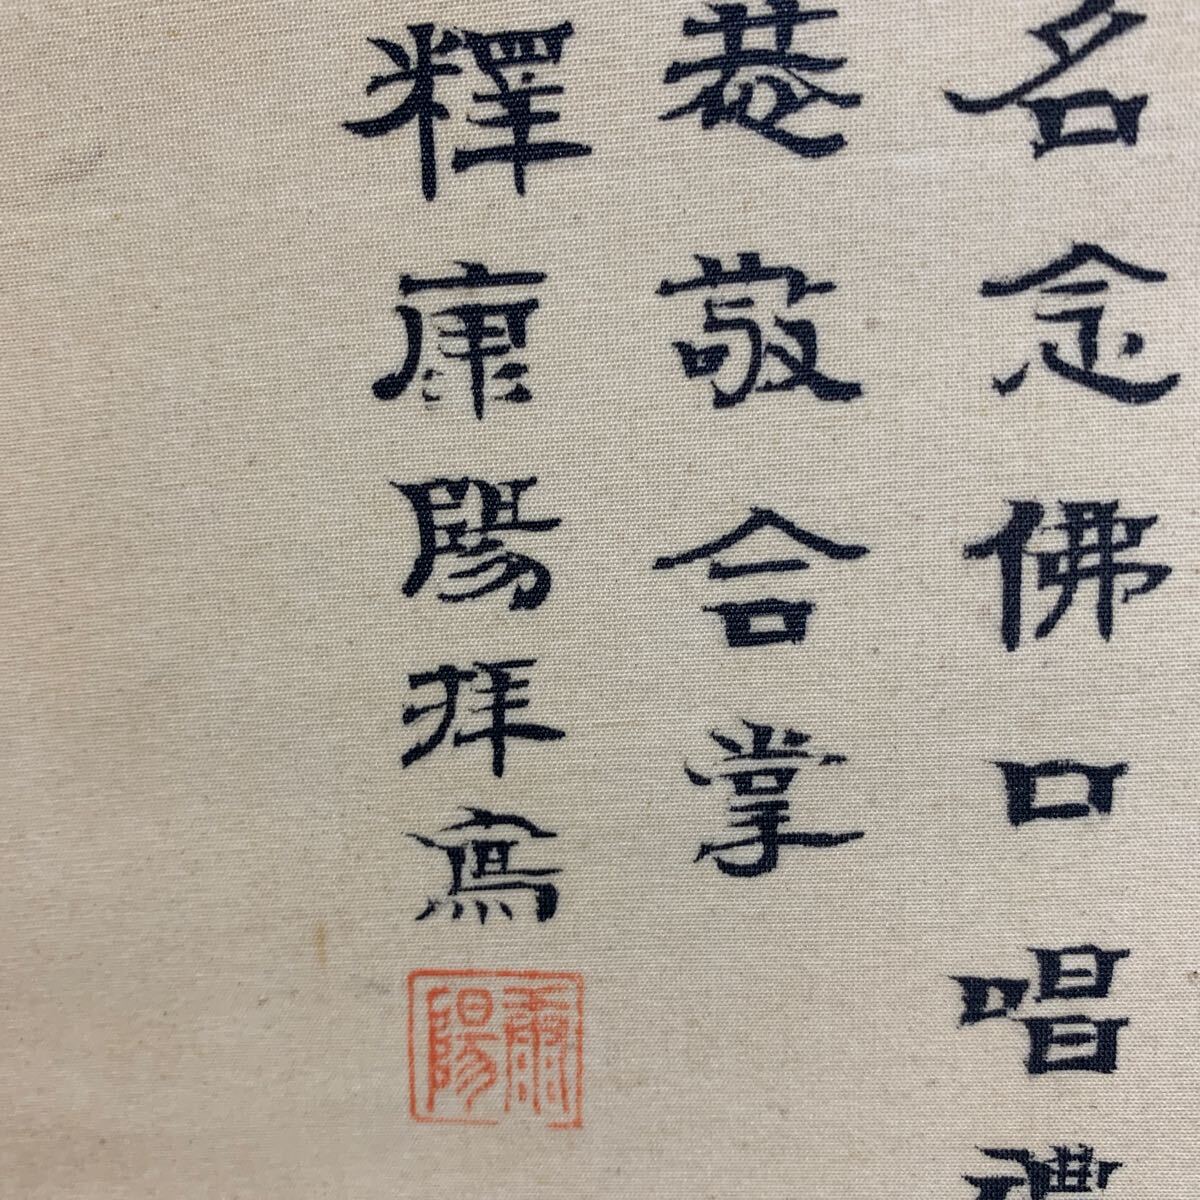 名念佛口唱禮
恭敬合掌
釋康陽拜寫
康陽